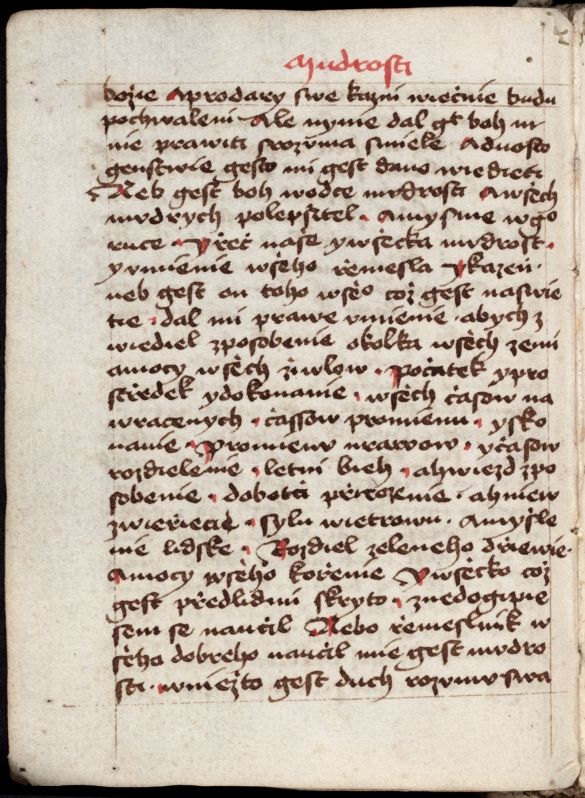 Mudrosti
bozie Aprodary swe kazni wiećnie budu
pochwaleni Ale nynie dal gt boh mi
nie prawiti srozuma smiele Aduosto
genstwie gesto mi gest dano wiedieti
Neb gest boh wodce mudrosti Awšech
mudrych polepšitel · Amysme wgo
ruce · Yřeć nase ywšecka mudrost ·
yumienie wšeho řemesla Ykazeň ·
neb gest on toho wšeo což gest naswie
tie · dal mi prawe umienie · abych z
wiediel zposobenie okolka wšech zemi
amocy wšech žiwlow · Počatek ypro
středek ydokonanie · wšech ćasow na
wracenych · ćassow promienu · ysko
nanie · Promienu mrawow · yćasow
rozdielenie · letni bieh · ahwiezd zpo
sobenie · dobotći přirozenie · ahniew
zwieřiecie · sylu wietrowu · Amyšle
nie lidske · Rozdiel zeleneho dřiewie ·
Amocy wšeho kořenie Ywšecko což
gest předlidmi skryto · znedogipie
sem se naučil Nebo řemeslnik w
šeho dobreho naučil mie gest mudro
sti · wniežto gest duch rozumu swa